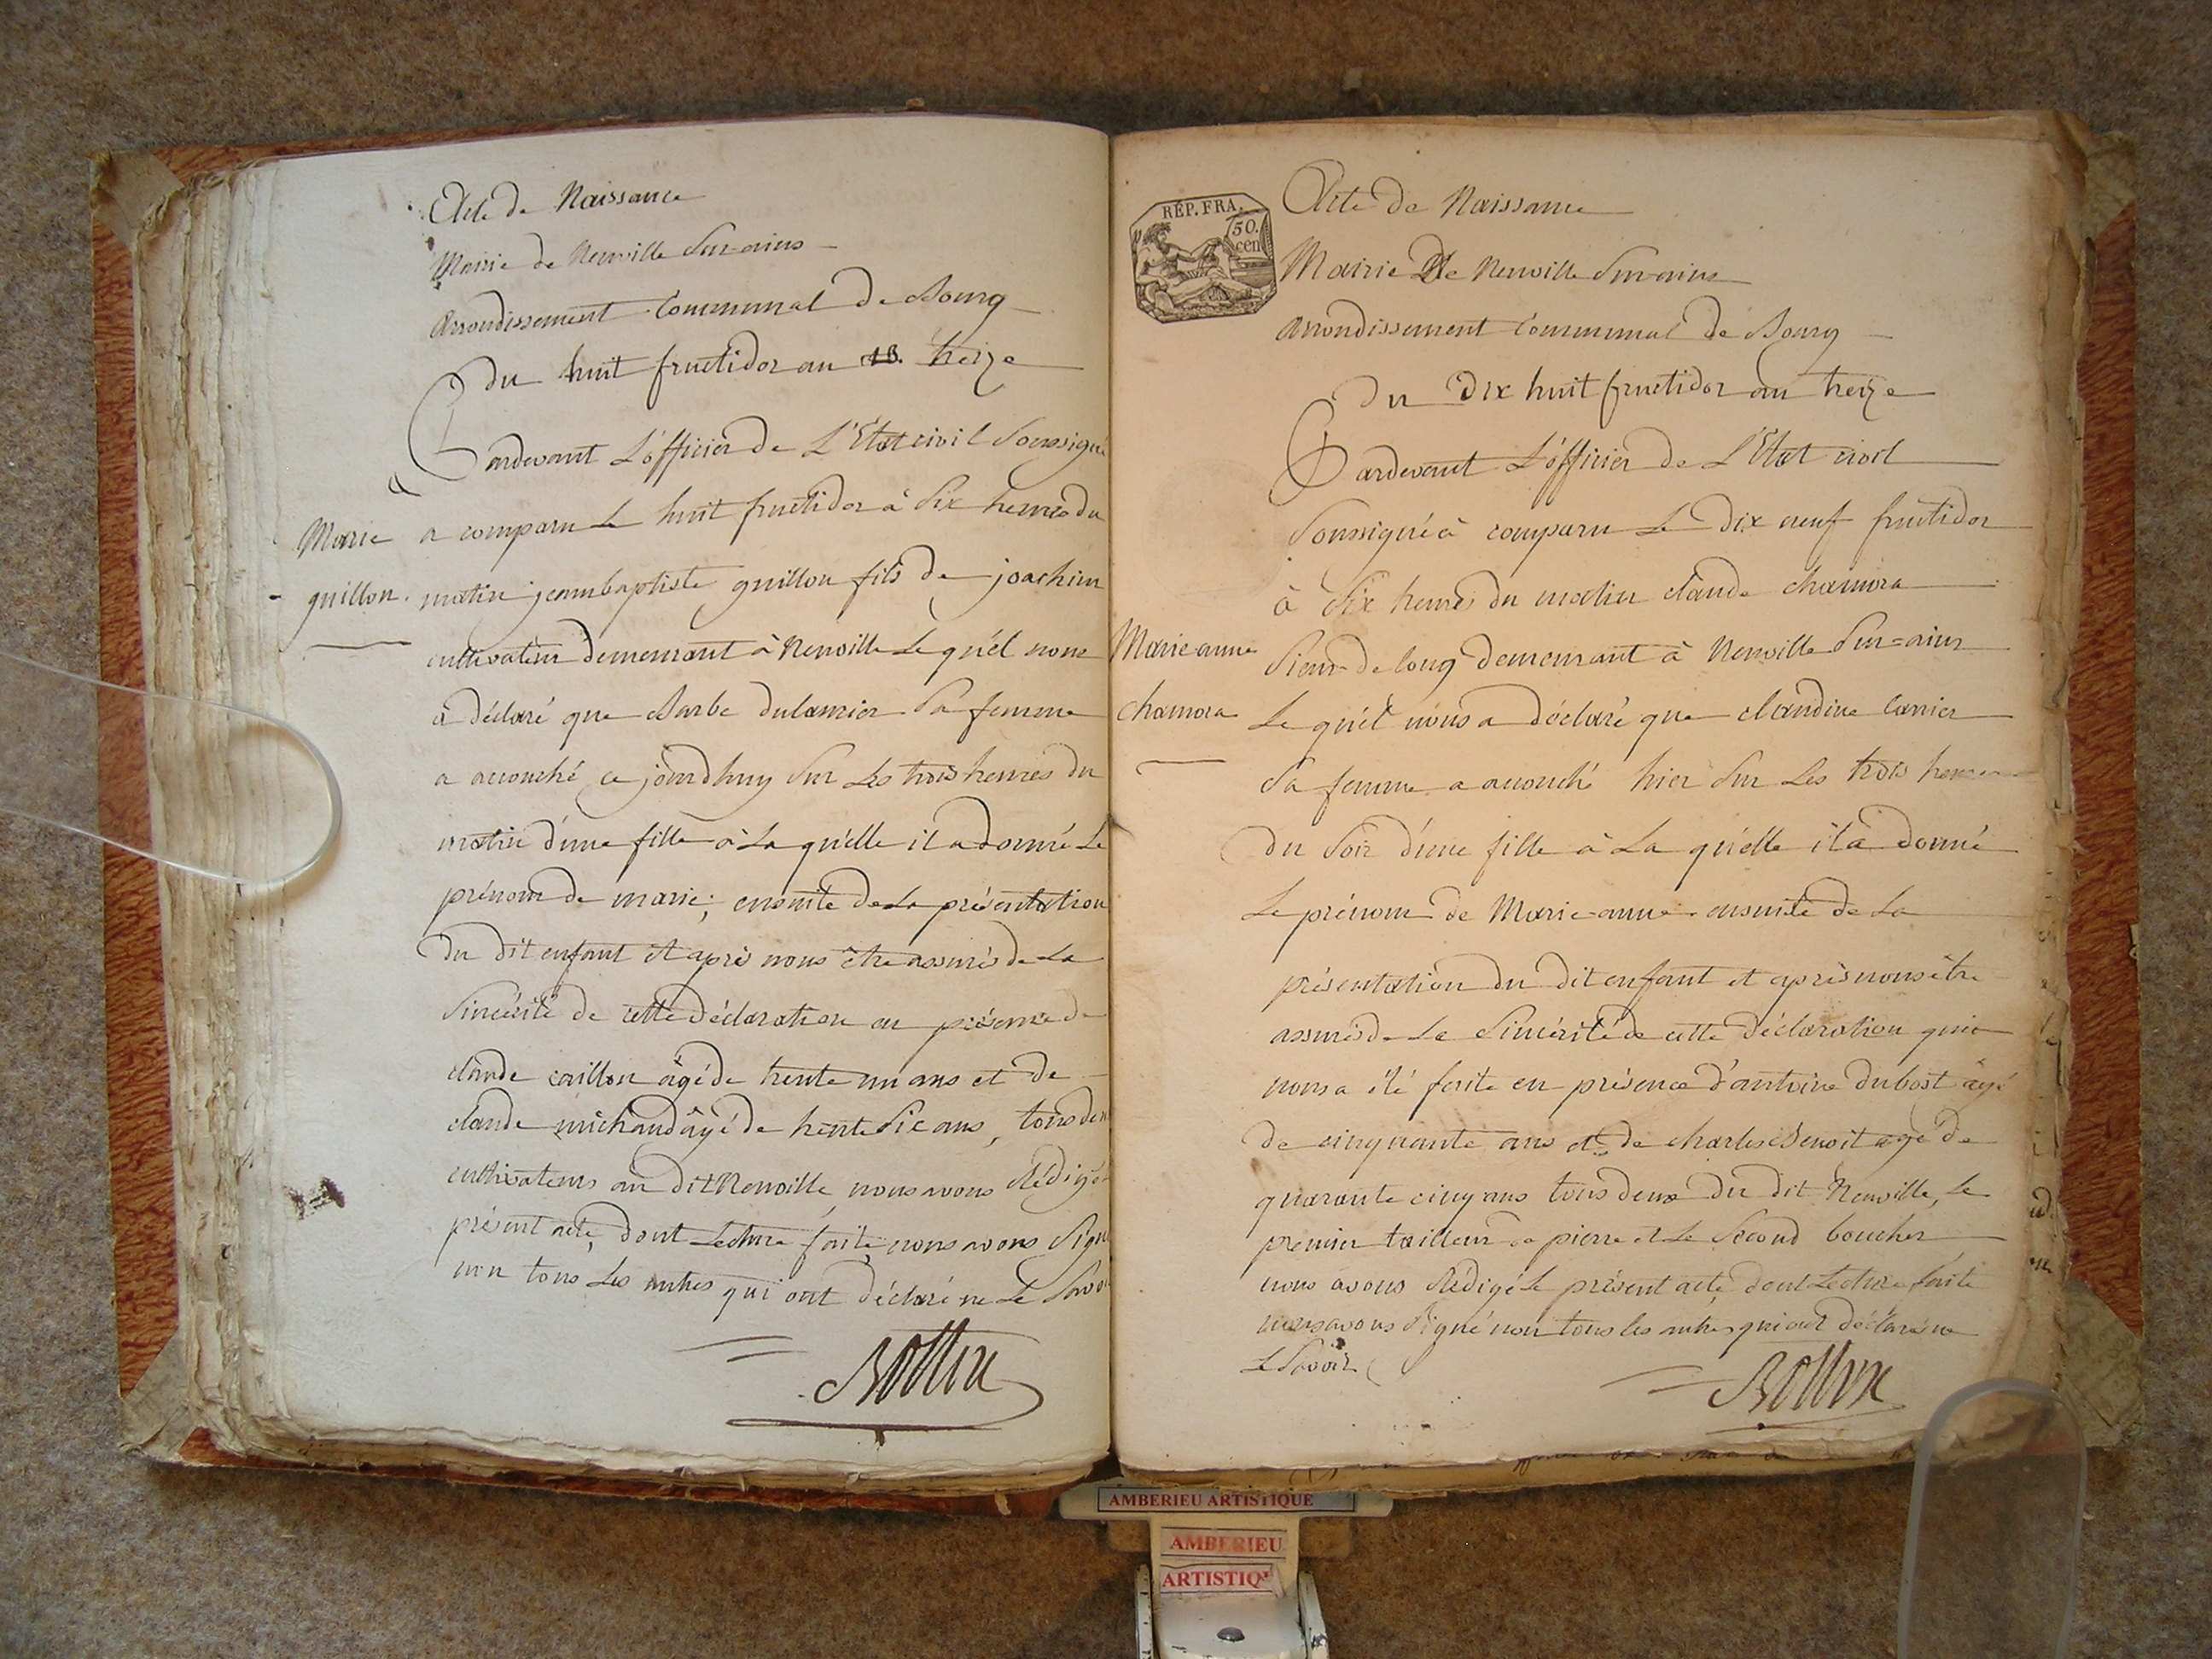 Acte de Naissance
Mairie de Neuville Sur-ains
Arrondissement Communal de Bourg
du huit fructidor an 13. treize
Pardevant L'officier de L'Etat civil Soussigné
a comparu Le huit fructidor à Six heures du
matin jeanbaptiste guillon fils de joachim
cultivateur demeurant à Neuville Le quel nous
a déclaré que Barbe dulaurier Sa femme
a accouché ce jourdhuy Sur Les trois heures du
matin d'une fille à La quelle il a donné Le
prénom de marie; ensuite de La présentation
du dit enfant et après nous être assurés de La
Sincérité de cette déclaration en présence de
claude caillon âgé de trente un ans et de
claude michaud âgé de trente Six ans, tous deux
cultivateurs au dit Neuville, nous avons Rédigé
présent acte, dont Lecture faite nous avons Signé
non tous Les autres qui ont déclaré ne Le Savoir
Rollin
Marie
guillon.
RÉP. FRA.
50.
cen
Acte de Naissance
Mairie De Neuville Sur-ains
Arrondissement Communal de Bourg
du Dix huit fructidor an treize
Pardevant L'officier de L'Etat civil
Soussigné à comparu Le dix neuf fructidor
à Six heures du matin claude chamora
Sieur de long demeurant à Neuville Sur=ains
Le quel nous a déclaré que claudine Carrier
Sa femme a accouché hier Sur Les trois heures
du Soir d'une fille à La quelle il a donné
Le prénom de Marie-anne ensuite de La
présentation du dit enfant et après nous être
assurés de La Sincérité de cette déclaration qui
nous a été faite en présence d'antoine dubost âgé
de cinquante ans et de charles Benoit agé de
quarante cinq ans tous deux du dit Neuville, Le
premier tailleur de pierre et Le Second boucher
nous avons Rédigé Le présent acte, dont Lecture faite
nous avons Signé non tous les autres qui ont déclaré ne
Le Savoir
Rollin
Marie-anne
chamora
AMBERIEU ARTISTIQUE
AMBERIEU
ARTISTIQ